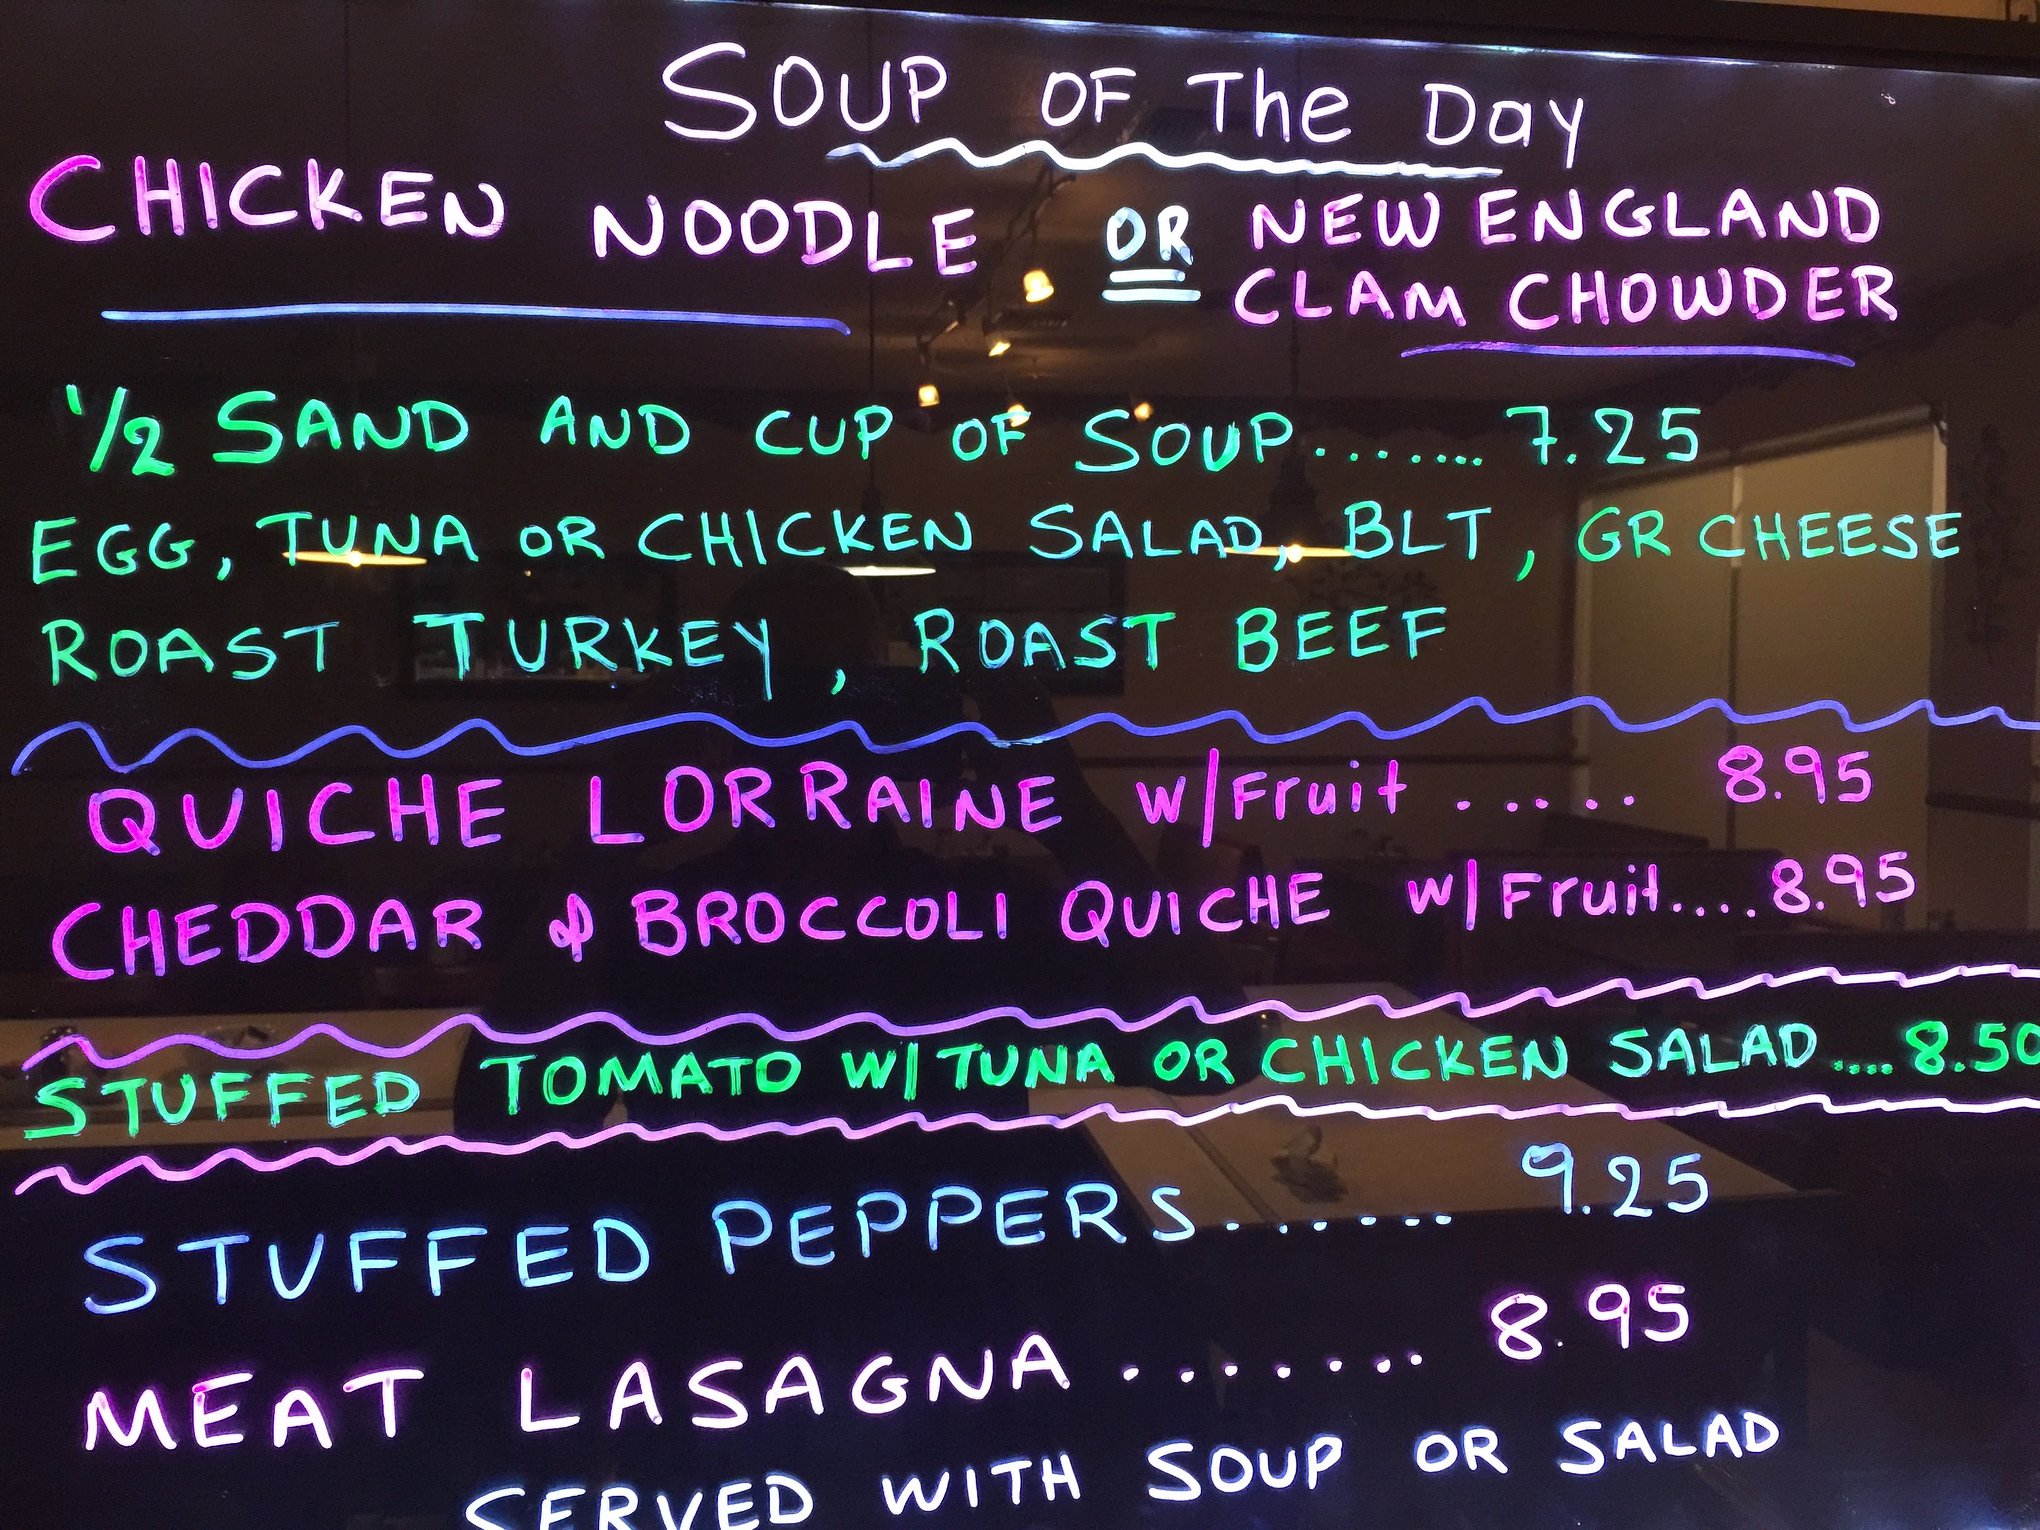 SOUP OF The Day
CHICKEN NOODLE OR NEW ENGLAND
CLAM CHOWDER
1/2 SAND AND CUP OF SOUP....... 7.25
EGG, TUNA OR CHICKEN SALAD, BLT, GR CHEESE
ROAST TURKEY, ROAST BEEF
QUICHE LORRAINE w/Fruit ..... 8.95
CHEDDAR & BROCCOLI QUICHE w/Fruit....8.95
STUFFED TOMATO W/TUNA OR CHICKEN SALAD.... 8.50
STUFFED PEPPERS...... 9.25
MEAT LASAGNA ....... 8.95
SERVED WITH SOUP OR SALAD